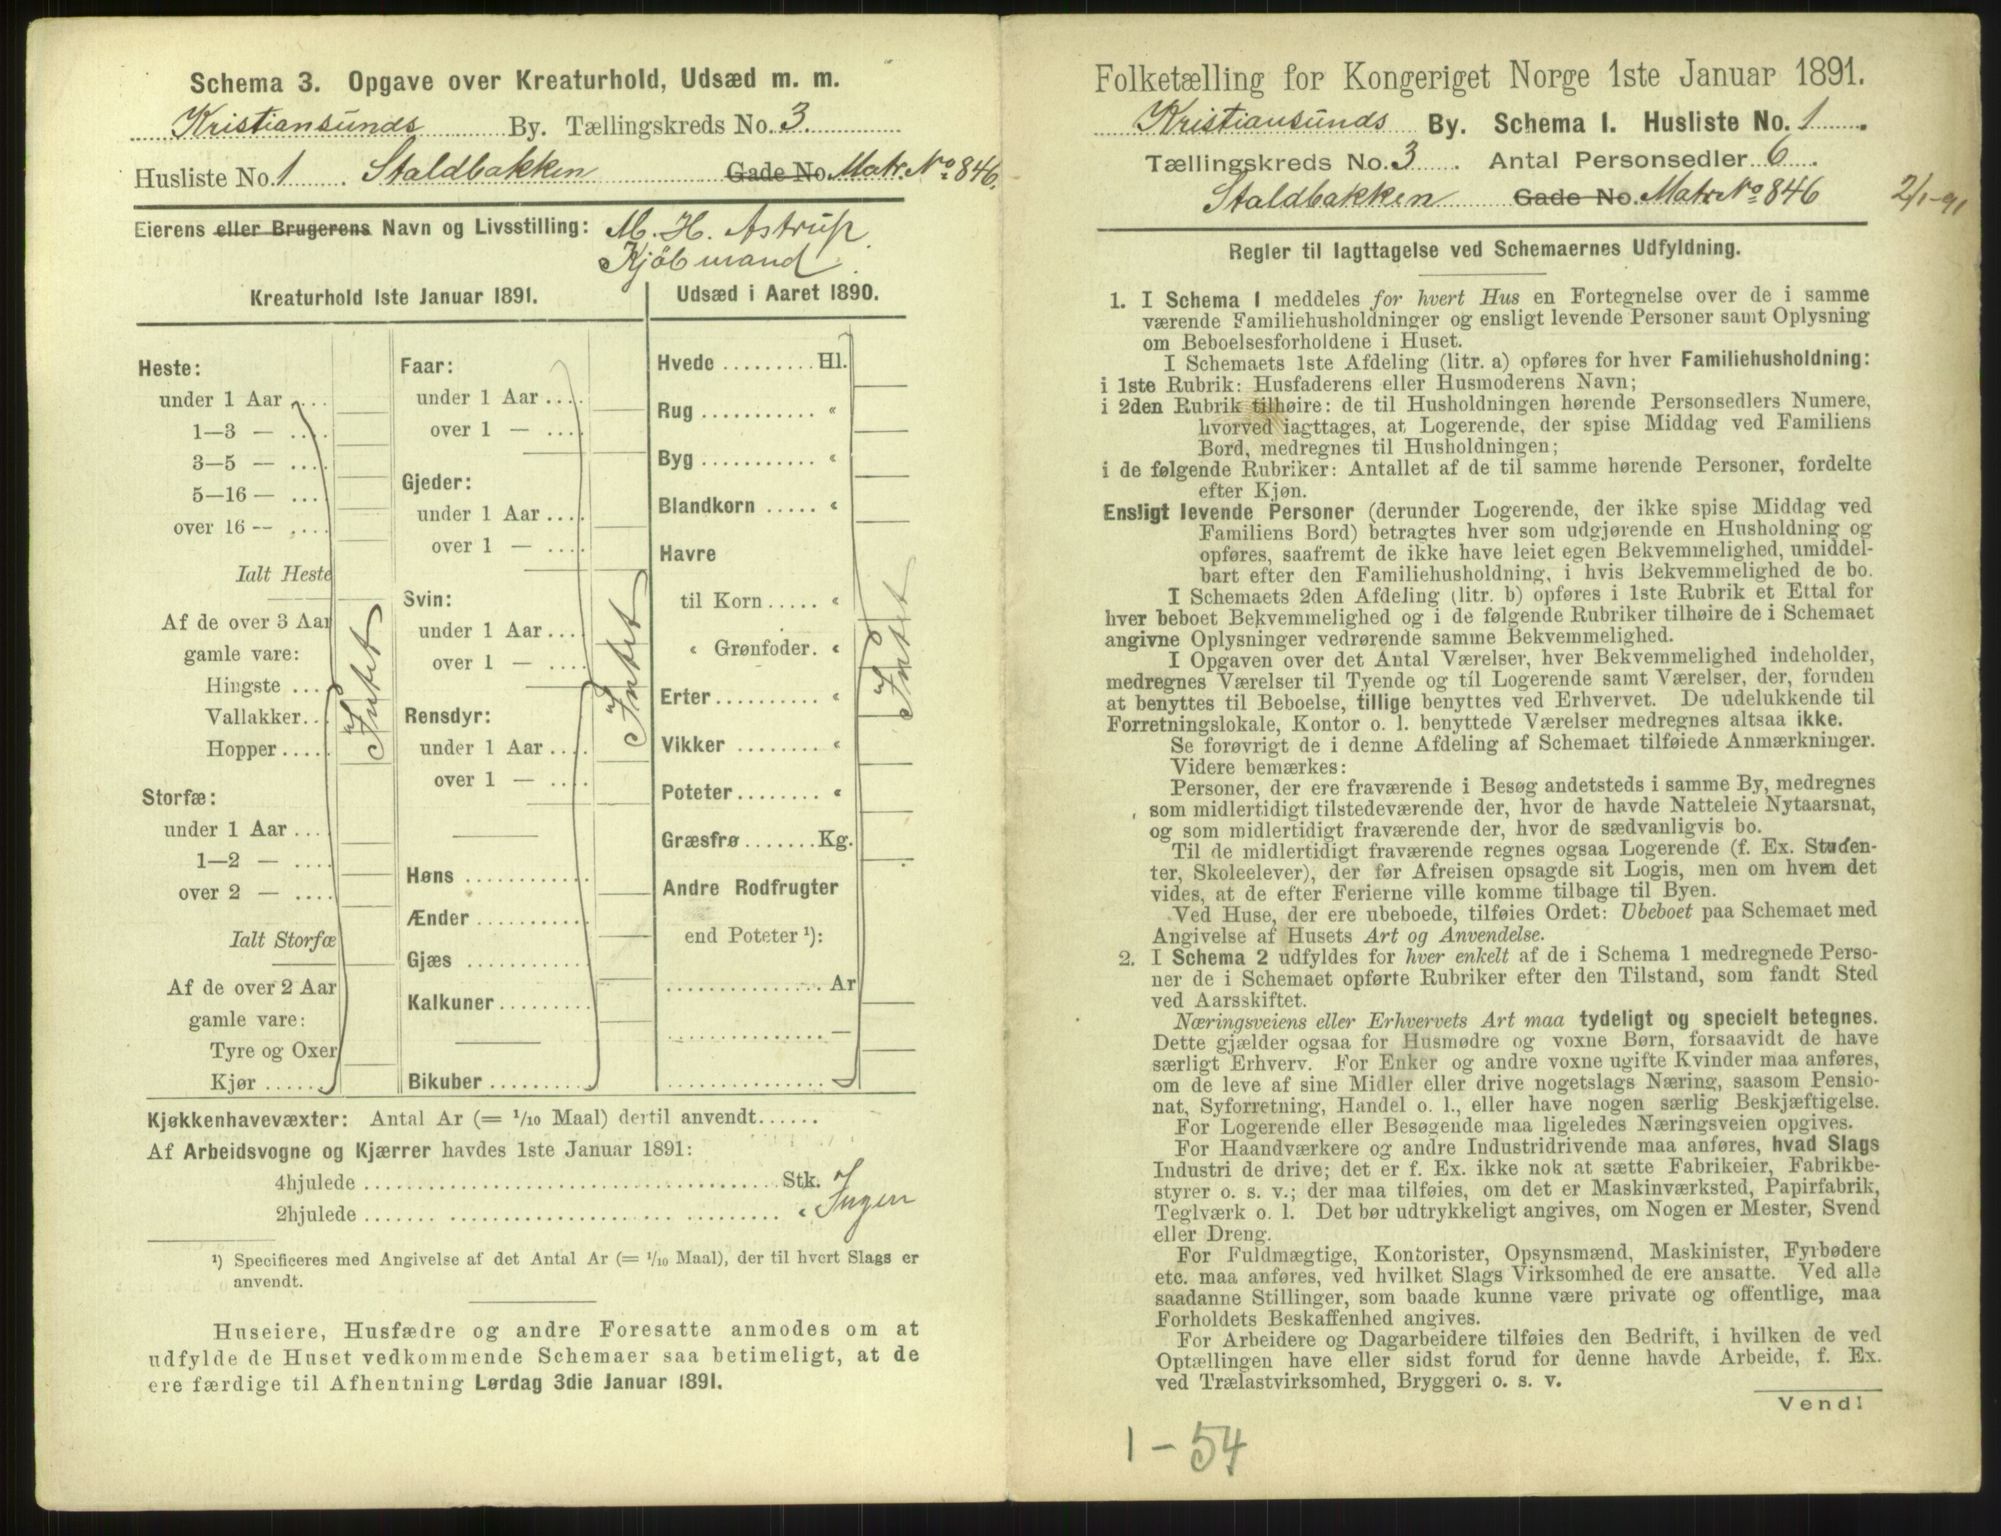 Schema 3. Opgave over Kreaturhold, Udsæd m. m.
Kristiansunds By. Tællingskreds No. 3.
Husliste No. 1 Staldbakken Gade No. Matr. No 846.
Eierens eller Brugerens Navn og Livsstilling: M. H. Astrup.
Kjöbmand.
Kreaturhold 1ste Januar 1891.
Heste:
under 1 Aar ....
1—3 — ....
3—5 — ....
5—16 — ....
over 16 -- ....
Ialt Heste
Af de over 3 Aar
gamle vare:
Hingste ....
Vallakker...
Hopper .....
Storfæ:
under 1 Aar ....
1—2 — ....
over 2 — ....
Ialt Storfæ
Af de over 2 Aar
gamle vare:
Tyre og Oxer
Kjør ......
Intet
Faar:
under 1 Aar ....
over 1 — ....
Gjeder:
under 1 Aar ....
over 1 — ....
Svin:
under 1 Aar ....
over 1 — ....
Rensdyr:
under 1 Aar ....
over 1 — ....
Høns ............
Ænder ...........
Gjæs ............
Kalkuner .........
Bikuber ..........
Intet
Udsæd i Aaret 1890.
Hvede ......... Hl.
Rug ........... "
Byg ........... "
Blandkorn ..... "
Havre
til Korn ..... "
" Grønfoder. "
Erter ......... "
Vikker ........ "
Poteter ........ "
Græsfrø ....... Kg.
Andre Rodfrugter
end Poteter ¹):
................ Ar
................ —
................
Intet
Kjøkkenhavevæxter: Antal Ar (= 1/10 Maal) dertil anvendt......
Af Arbeidsvogne og Kjærrer havdes 1ste Januar 1891:
4hjulede ........................................ Stk.
2hjulede ........................................ " Ingen
¹) Specificeres med Angivelse af det Antal Ar (= 1/10 Maal), der til hvert Slags er
anvendt.
Huseiere, Husfædre og andre Foresatte anmodes om at
udfylde de Huset vedkommende Schemaer saa betimeligt, at de
ere færdige til Afhentning Lørdag 3die Januar 1891.
Folketælling for Kongeriget Norge 1ste Januar 1891.
Kristiansunds By. Schema I. Husliste No. 1.
Tællingskreds No. 3. Antal Personsedler 6.
Staldbakken Gade No. Matr No 846 2/1-91
Regler til Iagttagelse ved Schemaernes Udfyldning.
1. I Schema I meddeles for hvert Hus en Fortegnelse over de i samme
værende Familiehusholdninger og ensligt levende Personer samt Oplysning
om Beboelsesforholdene i Huset.
I Schemaets 1ste Afdeling (litr. a) opføres for hver Familiehusholdning:
i 1ste Rubrik: Husfaderens eller Husmoderens Navn;
i 2den Rubrik tilhøire: de til Husholdningen hørende Personsedlers Numere,
hvorved iagttages, at Logerende, der spise Middag ved Familiens
Bord, medregnes til Husholdningen;
i de følgende Rubriker: Antallet af de til samme hørende Personer, fordelte
efter Kjøn.
Ensligt levende Personer (derunder Logerende, der ikke spise Middag ved
Familiens Bord) betragtes hver som udgjørende en Husholdning og
opføres, saafremt de ikke have leiet egen Bekvemmelighed, umiddel-
bart efter den Familiehusholdning, i hvis Bekvemmelighed de bo.
I Schemaets 2den Afdeling (litr. b) opføres i 1ste Rubrik et Ettal for
hver beboet Bekvemmelighed og i de følgende Rubriker tilhøire de i Schemaet
angivne Oplysninger vedrørende samme Bekvemmelighed.
I Opgaven over det Antal Værelser, hver Bekvemmelighed indeholder,
medregnes Værelser til Tyende og til Logerende samt Værelser, der, foruden
at benyttes til Beboelse, tillige benyttes ved Erhvervet. De udelukkende til
Forretningslokale, Kontor o. l. benyttede Værelser medregnes altsaa ikke.
Se forøvrigt de i denne Afdeling af Schemaet tilføiede Anmærkninger.
Videre bemærkes:
Personer, der ere fraværende i Besøg andetsteds i samme By, medregnes
som midlertidigt tilstedeværende der, hvor de havde Natteleie Nytaarsnat,
og som midlertidigt fraværende der, hvor de sædvanligvis bo.
Til de midlertidigt fraværende regnes ogsaa Logerende (f. Ex. Studen-
ter, Skoleelever), der før Afreisen opsagde sit Logis, men om hvem det
vides, at de efter Ferierne ville komme tilbage til Byen.
Ved Huse, der ere ubeboede, tilføies Ordet: Ubeboet paa Schemaet med
Angivelse af Husets Art og Anvendelse.
2. I Schema 2 udfyldes for hver enkelt af de i Schema 1 medregnede Perso-
ner de i Schemaet opførte Rubriker efter den Tilstand, som fandt Sted
ved Aarsskiftet.
Næringsveiens eller Erhvervets Art maa tydeligt og specielt betegnes.
Dette gjælder ogsaa for Husmødre og voxne Børn, forsaavidt de have
særligt Erhverv. For Enker og andre voxne ugifte Kvinder maa anføres,
om de leve af sine Midler eller drive nogetslags Næring, saasom Pensio-
nat, Syforretning, Handel o. l., eller have nogen særlig Beskjæftigelse.
For Logerende eller Besøgende maa ligeledes Næringsveien opgives.
For Haandværkere og andre Industridrivende maa anføres, hvad Slags
Industri de drive; det er f. Ex. ikke nok at sætte Fabrikeier, Fabrikbe-
styrer o. s. v.; der maa tilføies, om det er Maskinværksted, Papirfabrik,
Teglværk o. l. Det bør udtrykkeligt angives, om Nogen er Mester, Svend
eller Dreng.
For Fuldmægtige, Kontorister, Opsynsmænd, Maskinister, Fyrbødere
etc. maa anføres, ved hvilket Slags Virksomhed de ere ansatte. Ved alle
saadanne Stillinger, som baade kunne være private og offentlige, maa
Forholdets Beskaffenhed angives.
For Arbeidere og Dagarbeidere tilføies den Bedrift, i hvilken de ved
Optællingen have eller sidst forud for denne havde Arbeide, f. Ex.
ved Trælastvirksomhed, Bryggeri o. s. v.
Vend!
1-54